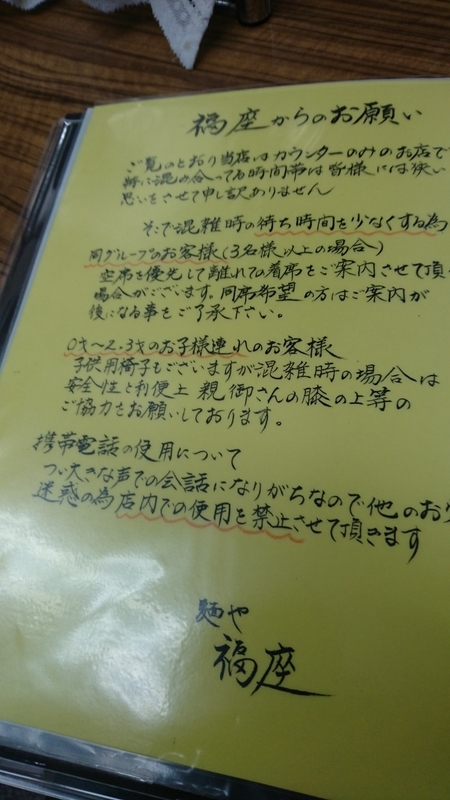 福座からのお願い
ご覧のとおり当店はカウンターのみのお店で
特に混み合ってる時間帯は皆様には狭い
思いをさせて申し訳ありません
そこで混雑時の待ち時間を少なくする為
同グループのお客様(3名様以上の場合)
空席を優先して離れての着席をご案内させて頂
場合がございます。同席希望の方はご案内が
後になる事をご了承下さい。
0才〜2.3才のお子様連れのお客様
子供用椅子もございますが混雑時の場合は
安全性と利便上 親御さんの膝の上等の
ご協力をお願いしております。
携帯電話の使用について
つい大きな声での会話になりがちなので他のお
迷惑の為店内での使用を禁止させて頂きます
麺や
福座